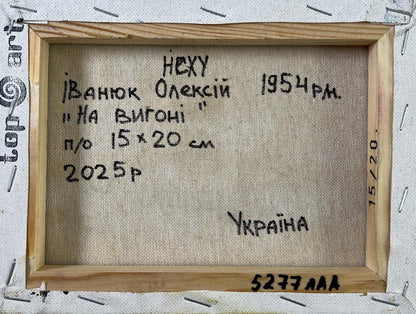 НСХУ
Іванюк Олексій 1954р.н.
"На вигоні"
п/о 15×20 см
2025р
Україна
5277ЛАА
15/20.
top art